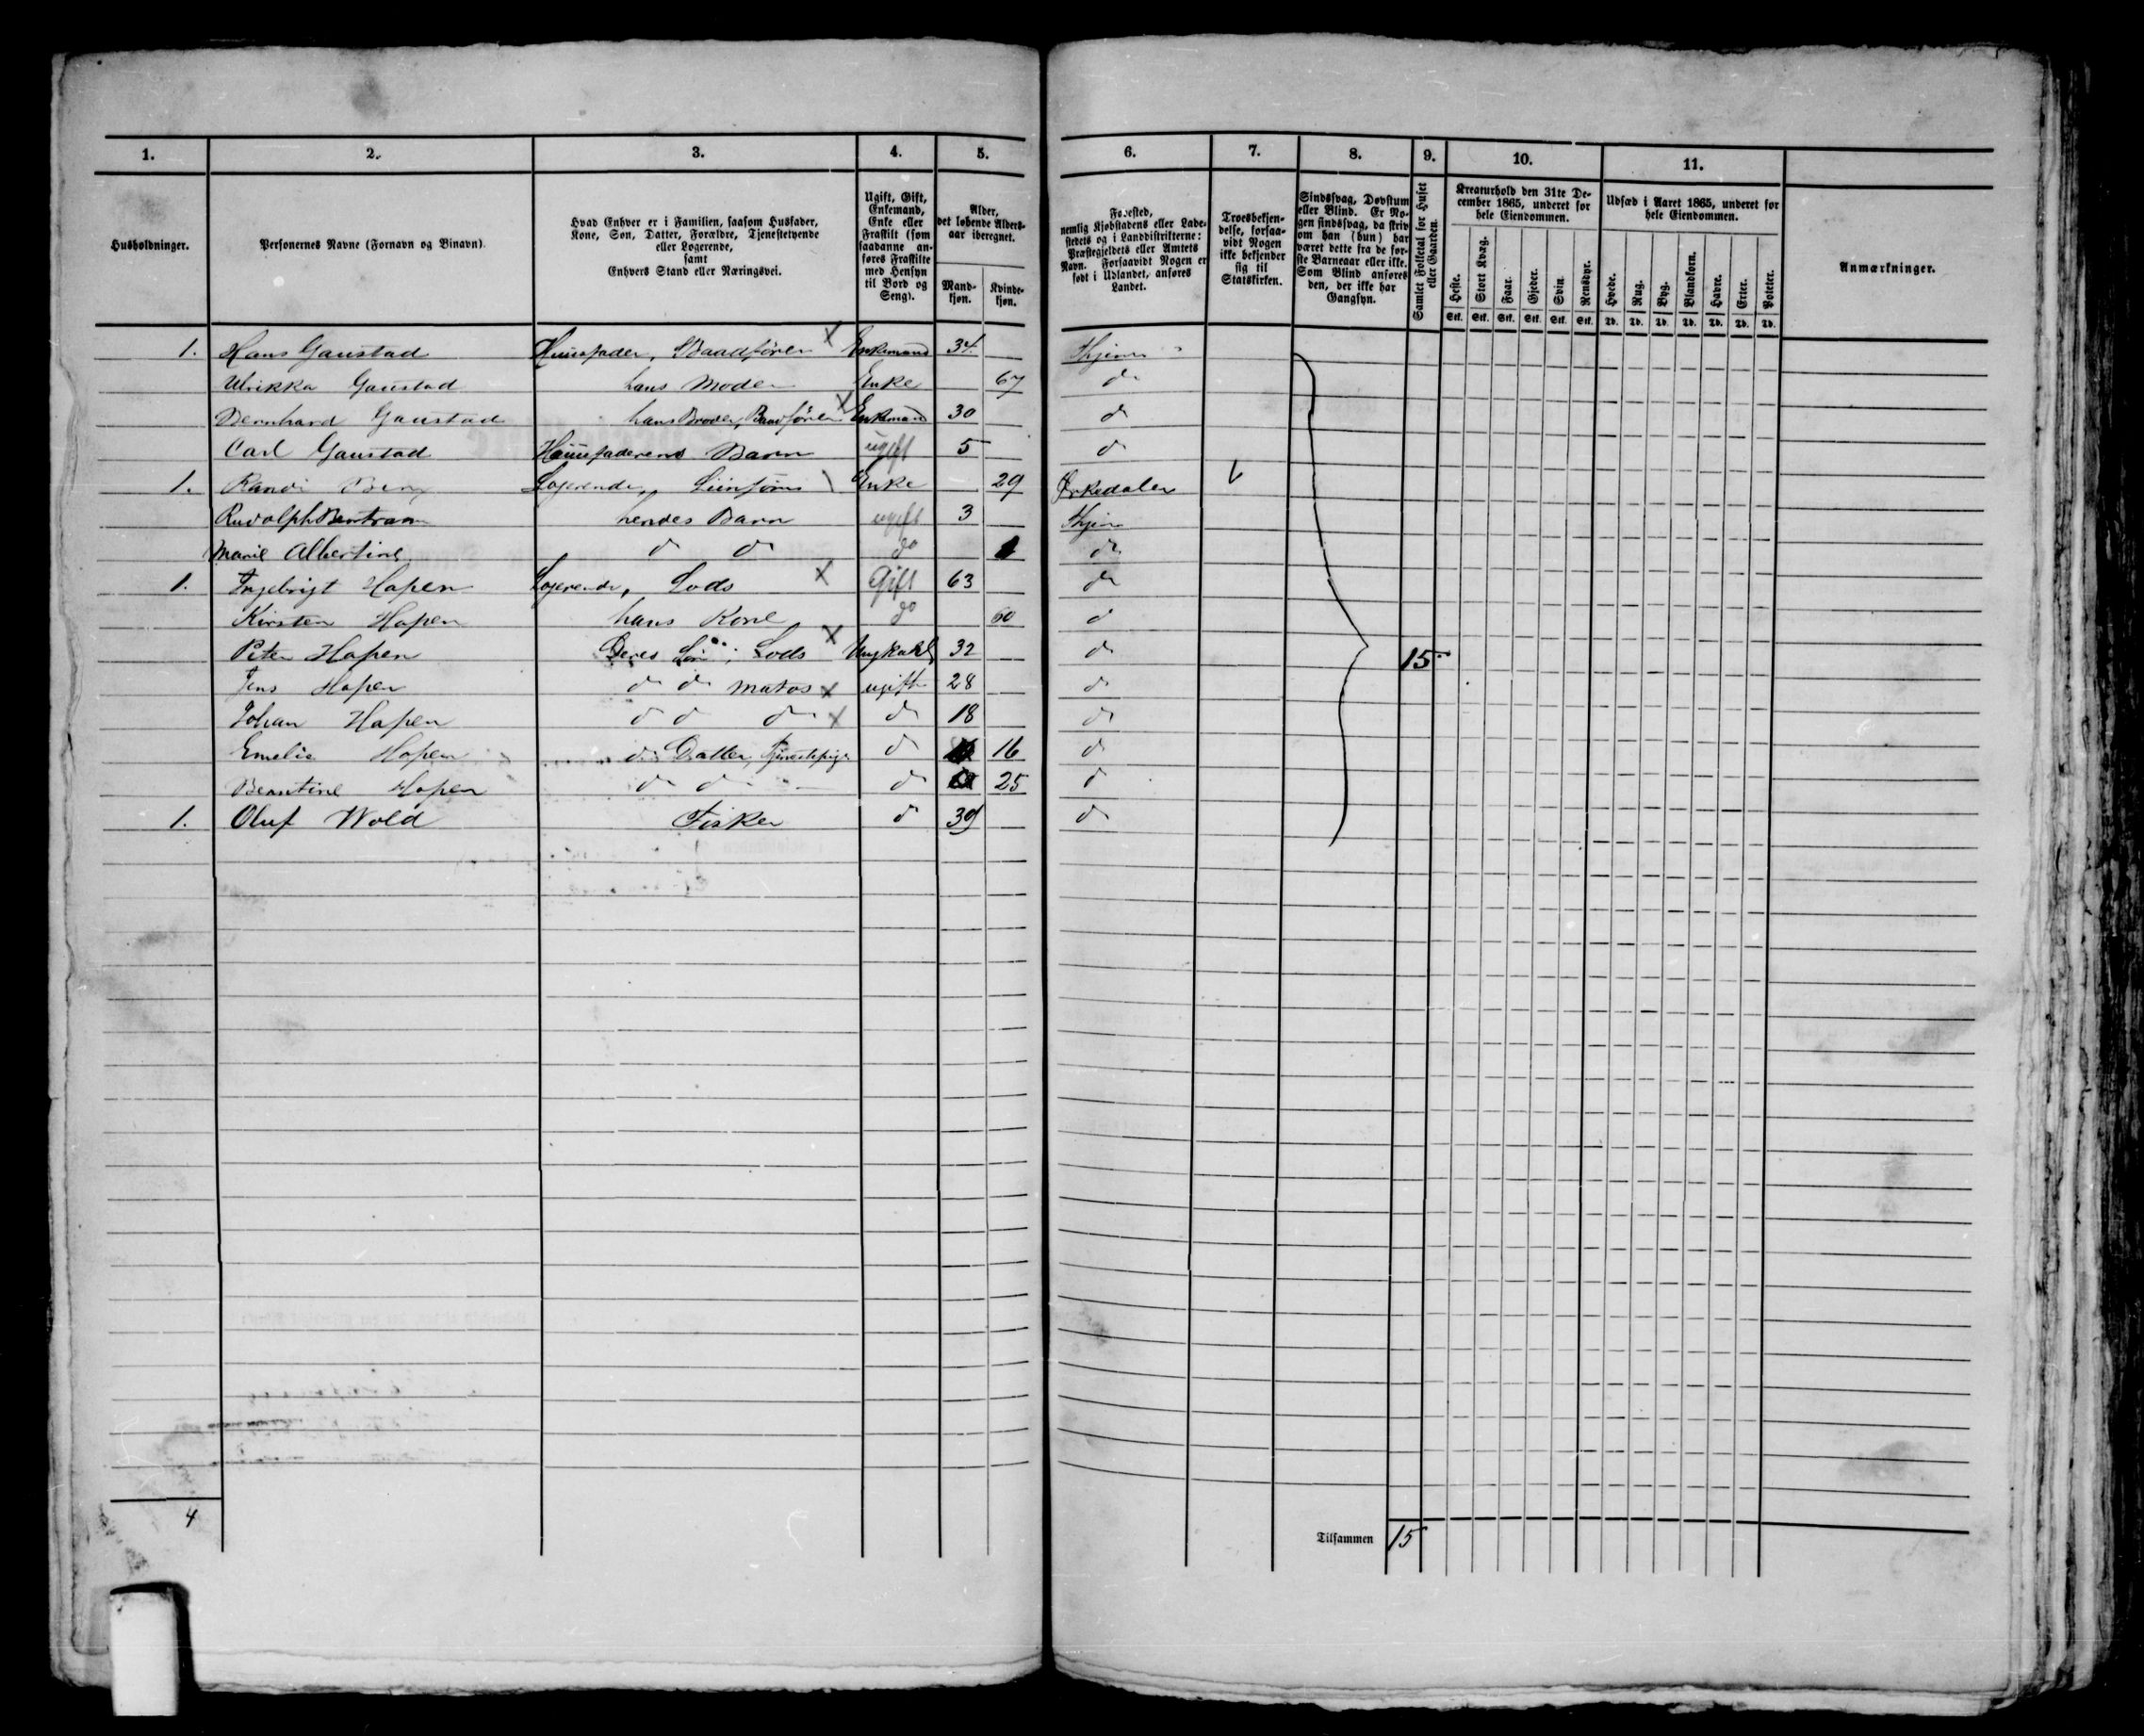 1. 2. 3. 4. 5. 6. 7. 8. 9. 10. 11.
Husholdninger.
Personernes Navne (Fornavn og Binavn).
Hvad Enhver er i Familien, saasom Husfader,
Kone, Søn, Datter, Forældre, Tjenestetyende
eller Logerende,
samt
Enhvers Stand eller Næringsvei.
Ugift, Gift,
Enkemand,
Enke eller
Fraskilt (som
saadanne an-
føres Fraskilte
med Hensyn
til Bord og
Seng).
Alder,
det løbende Alders-
aar iberegnet.
Mand-
kjøn.
Kvinde-
kjøn.
Fødested,
nemlig Kjøbstadens eller Lade-
stedets og i Landdistrikterne:
Præstegjeldets eller Amtets
Navn. Forsaavidt Nogen er
født i Udlandet, anføres
Landet.
Troesbekjen-
delse, forsaa-
vidt Nogen
ikke bekjender
sig til
Statskirken.
Sindssvag, Døvstum
eller Blind. Er No-
gen sindssvag, da skriv
om han (hun) har
været dette fra de før-
ste Barneaar eller ikke.
Som Blind anføres
den, der ikke har
Gangsyn.
Samlet Folketal for Huset
eller Gaarden.
Kreaturhold den 31te De-
cember 1865, underet for
hele Eiendommen.
Heste. Stort Kvæg. Faar. Gjeder. Svin. Rensdyr.
Stk. Stk. Stk. Stk. Stk. Stk.
Udsæd i Aaret 1865, underet for
hele Eiendommen.
Hvede. Rug. Byg. Blandkorn. Havre. Erter. Poteter.
Td. Td. Td. Td. Td. Td. Td.
Anmærkninger.
1. Hans Gaustad Huusfader, Baadfører Enkemand 34
Ulrikka Gaustad hans Moder Enke 67 do
Bernhard Gaustad hans Broder, Baadfører Enkemand 30 do
Carl Gaustad Huusfaderens Barn ugift 5 do
1. Randi Berg Logerende, Enke 29 Ørkedalen
Rudolph Bentram hendes Barn ugift 3
Marie Albertine do do do do
1. Ingebrigt Hopen Logerende, Lods Gift 63 do
Kirsten Hopen hans Kone do 60 do
Peter Hopen Deres Søn, Lods Ungkarl 32 do 15
Jens Hopen do do Matros ugift 28 do
Johan Hopen do do do do 18 do
Emelie Hopen do Datter, Tjenestepige do 16 do
Berntine Hopen do do do 25 do
1. Oluf Wold Fisker do 39 do
4
Tilsammen 15